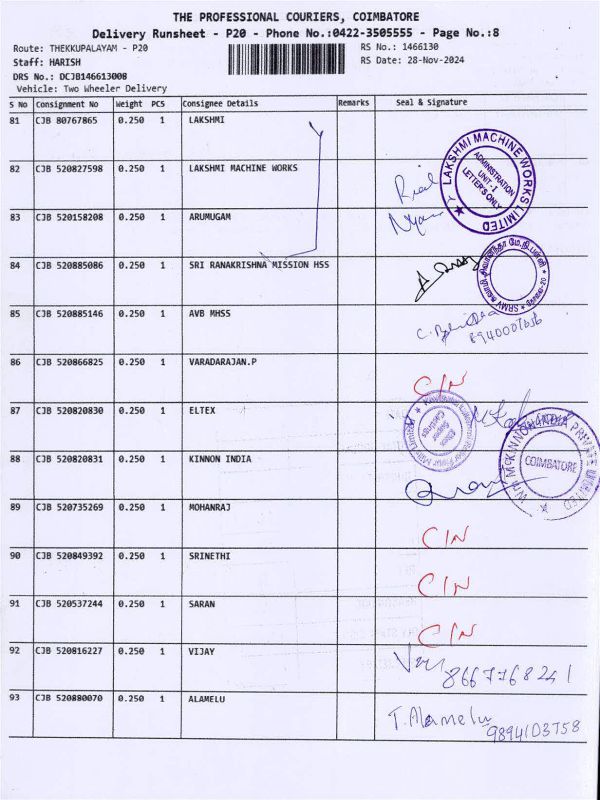 THE PROFESSIONAL COURIERS, COIMBATORE
Delivery Runsheet - P20 - Phone No.:0422-3505555 - Page No.:8
Route: THEKKUPALAYAM - P20 RS No.: 1466130
Staff: HARISH RS Date: 28-Nov-2024
DRS No.: DCJB146613008
Vehicle: Two Wheeler Delivery
S No Consignment No Weight PCS Consignee Details Remarks Seal & Signature
81 CJB 80767865 0.250 1 LAKSHMI
82 CJB 520827598 0.250 1 LAKSHMI MACHINE WORKS
LAKSHMI MACHINE WORKS LIMITED
ADMINISTRATION
UNIT-I
LETTER'S ONLY
83 CJB 520158208 0.250 1 ARUMUGAM
84 CJB 520885086 0.250 1 SRI RANAKRISHNA MISSION HSS
85 CJB 520885146 0.250 1 AVB MHSS
86 CJB 520866825 0.250 1 VARADARAJAN.P C/N
87 CJB 520820830 0.250 1 ELTEX
Eltex
Super
Castings
88 CJB 520820831 0.250 1 KINNON INDIA
COIMBATORE
89 CJB 520735269 0.250 1 MOHANRAJ C/N
90 CJB 520849392 0.250 1 SRINETHI C/N
91 CJB 520537244 0.250 1 SARAN C/N
92 CJB 520816227 0.250 1 VIJAY 8667768241
93 CJB 520880070 0.250 1 ALAMELU T. Alamelu 9894103758